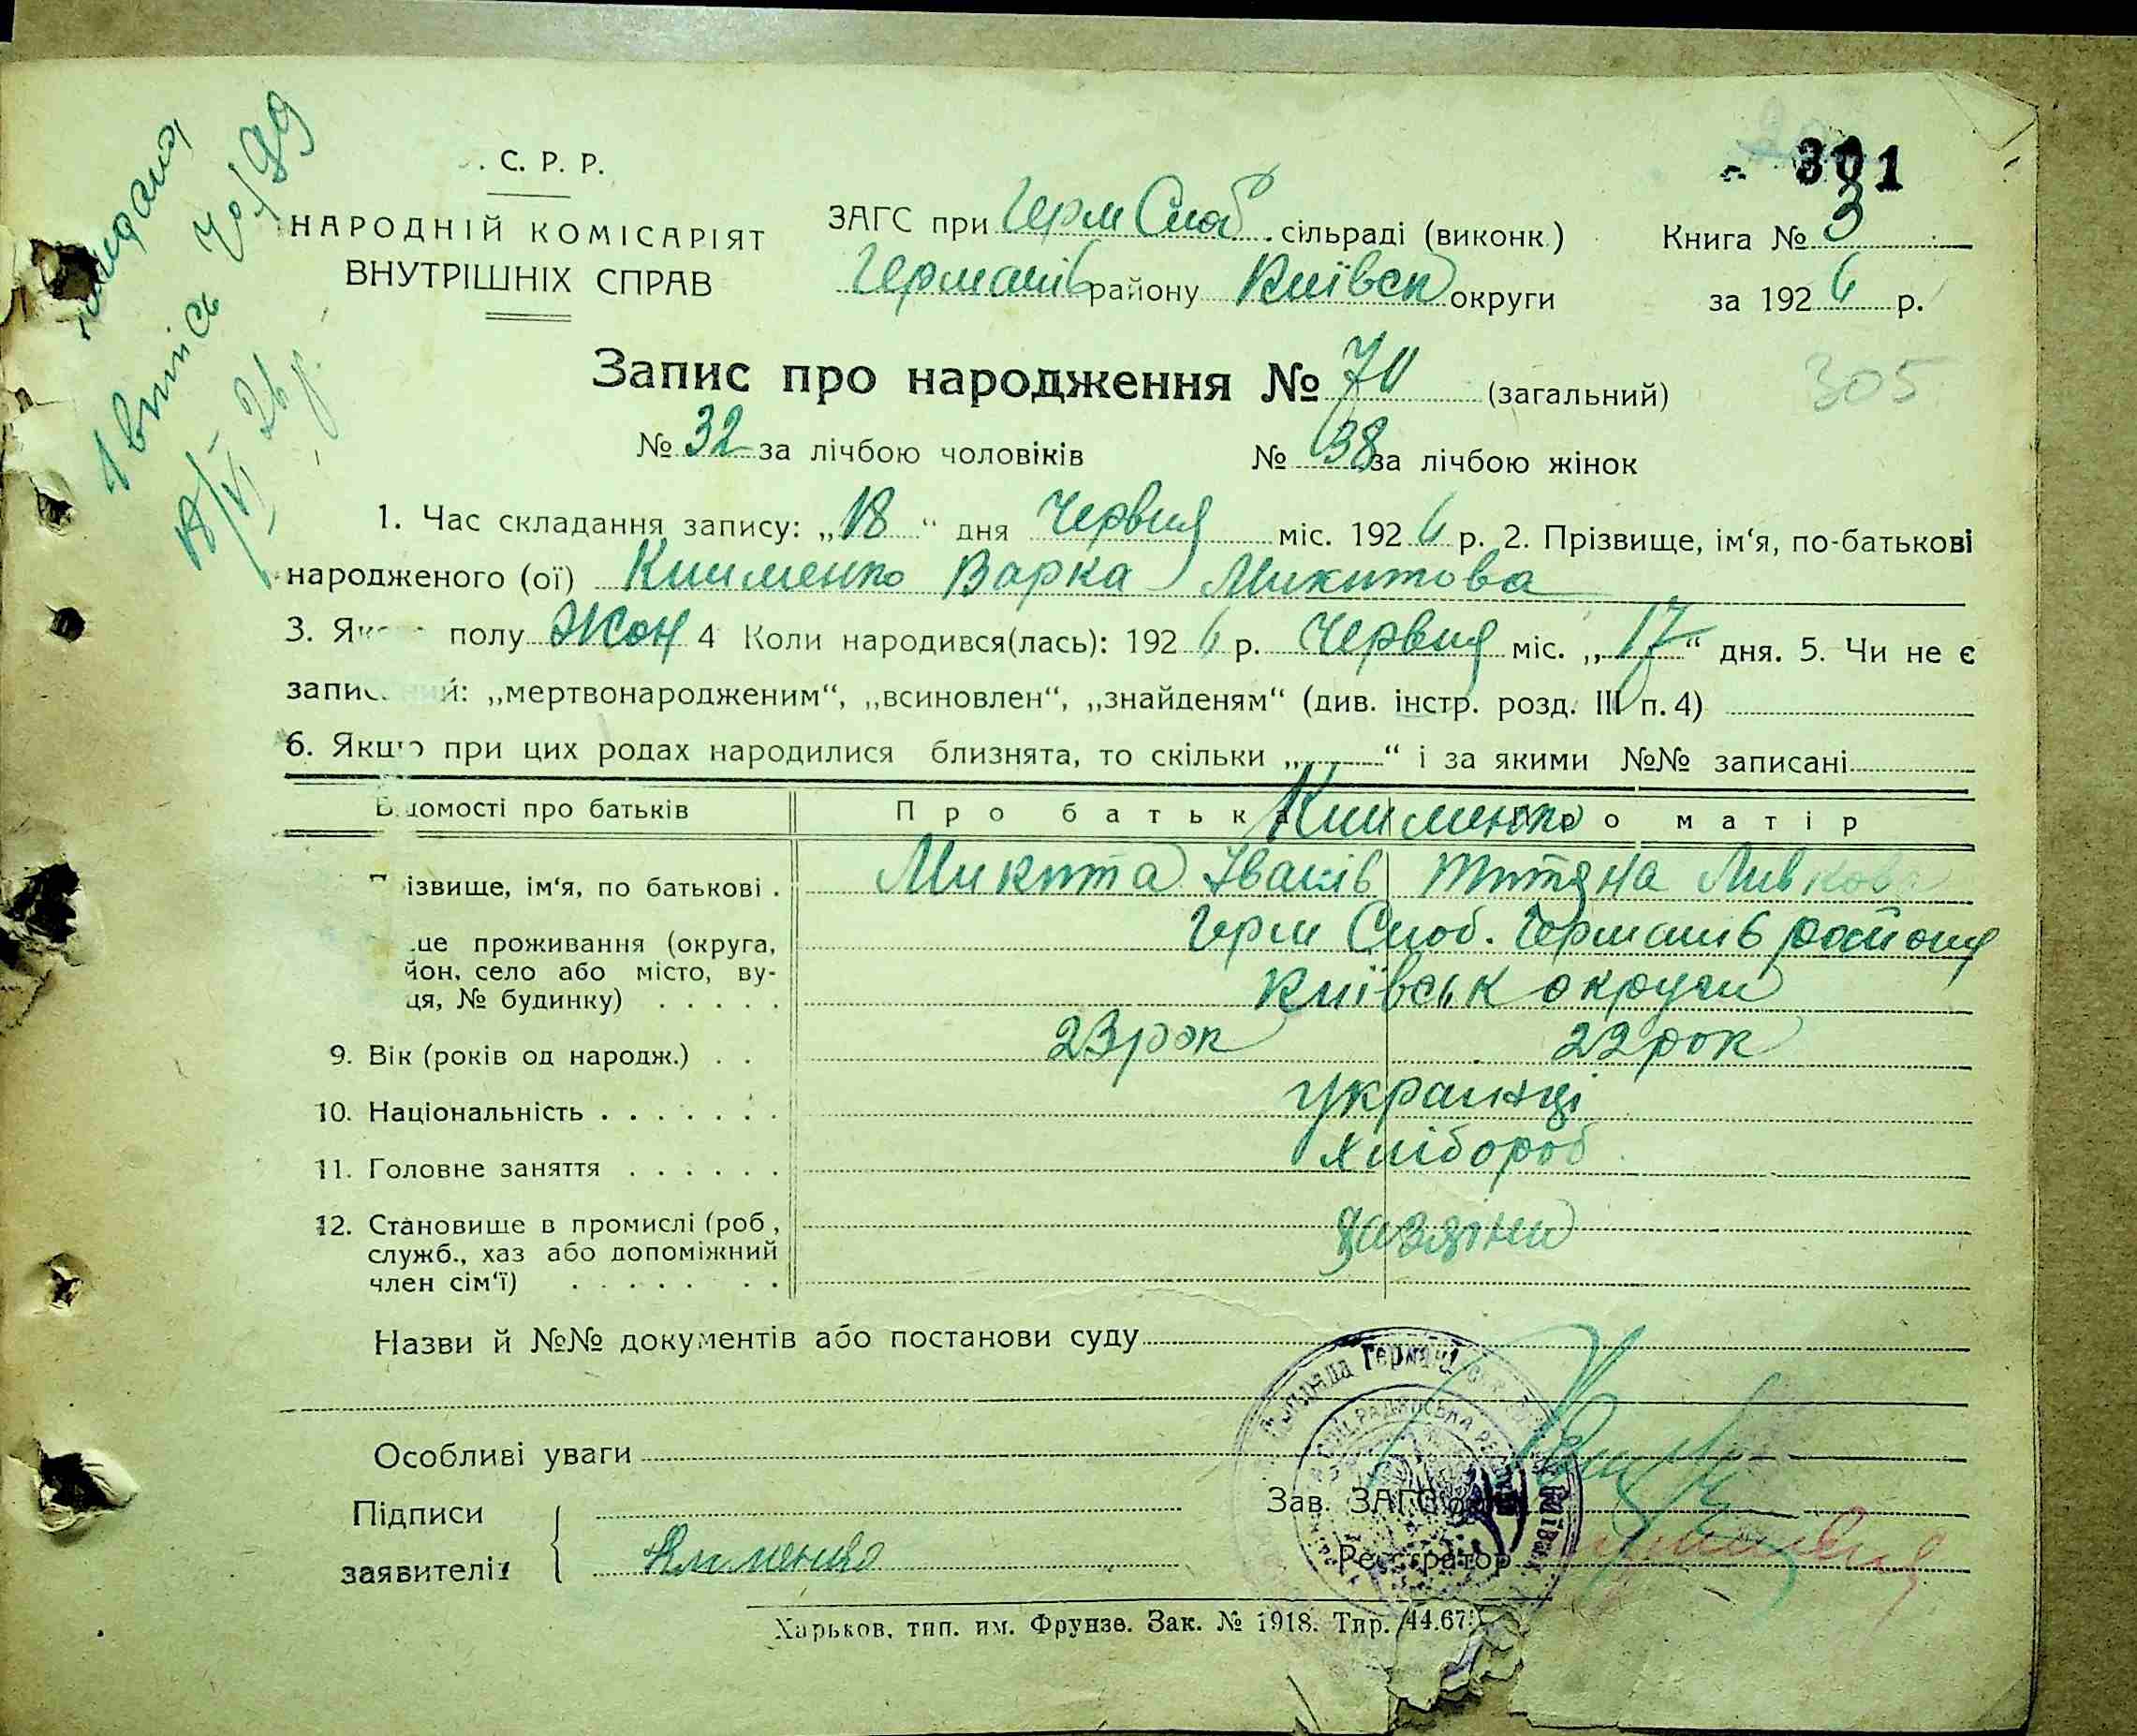 . С. Р. Р.
НАРОДНІЙ КОМІСАРІЯТ
ВНУТРІШНІХ СПРАВ
ЗАГС при Герм Слоб. сільраді (виконк.)
Германів району Київськ округи
301
Книга № 3
за 1926 р.
Запис про народження № 70 (загальний)
305
№ 32 за лічбою чоловіків № 38 за лічбою жінок
1 впись № 99
18/VI 26 р.
1. Час складання запису: „18“ дня Червня міс. 1926 р. 2. Прізвище, ім‘я, по-батькові
народженого (ої) Клименко Варка Микитова
3. Як полу Жон 4 Коли народився(лась): 1926 р. Червня міс. „17“ дня. 5. Чи не є
запис й: „мертвонародженим“, „всиновлен“, „знайденям“ (див. інстр. розд. III п. 4)
6. Якщо при цих родах народилися близнята, то скільки „ “ і за якими №№ записані
Відомості про батьків Про батька Про матір
Клименко
ізвище, ім‘я, по батькові . Микита Іванів Титяна Ливкова
це проживання (округа, Герм Слоб. Германів району
йон, село або місто, ву-
ця, № будинку) . . . . . Київськ округи
9. Вік (років од народж.) . . 23 рок 22 рок
10. Національність . . . . . . . українці
11. Головне заняття . . . . . . хлібороб
12. Становище в промислі (роб,
служб., хаз або допоміжний
член сім‘ї) . . . . . . . хазяїни
Назви й №№ документів або постанови суду
Особливі уваги
Підписи
заявителів
Клименко
Зав. ЗАГС‘ом
Реєстратор
Харьков, тип. им. Фрунзе. Зак. № 1918. Тир. 44.67